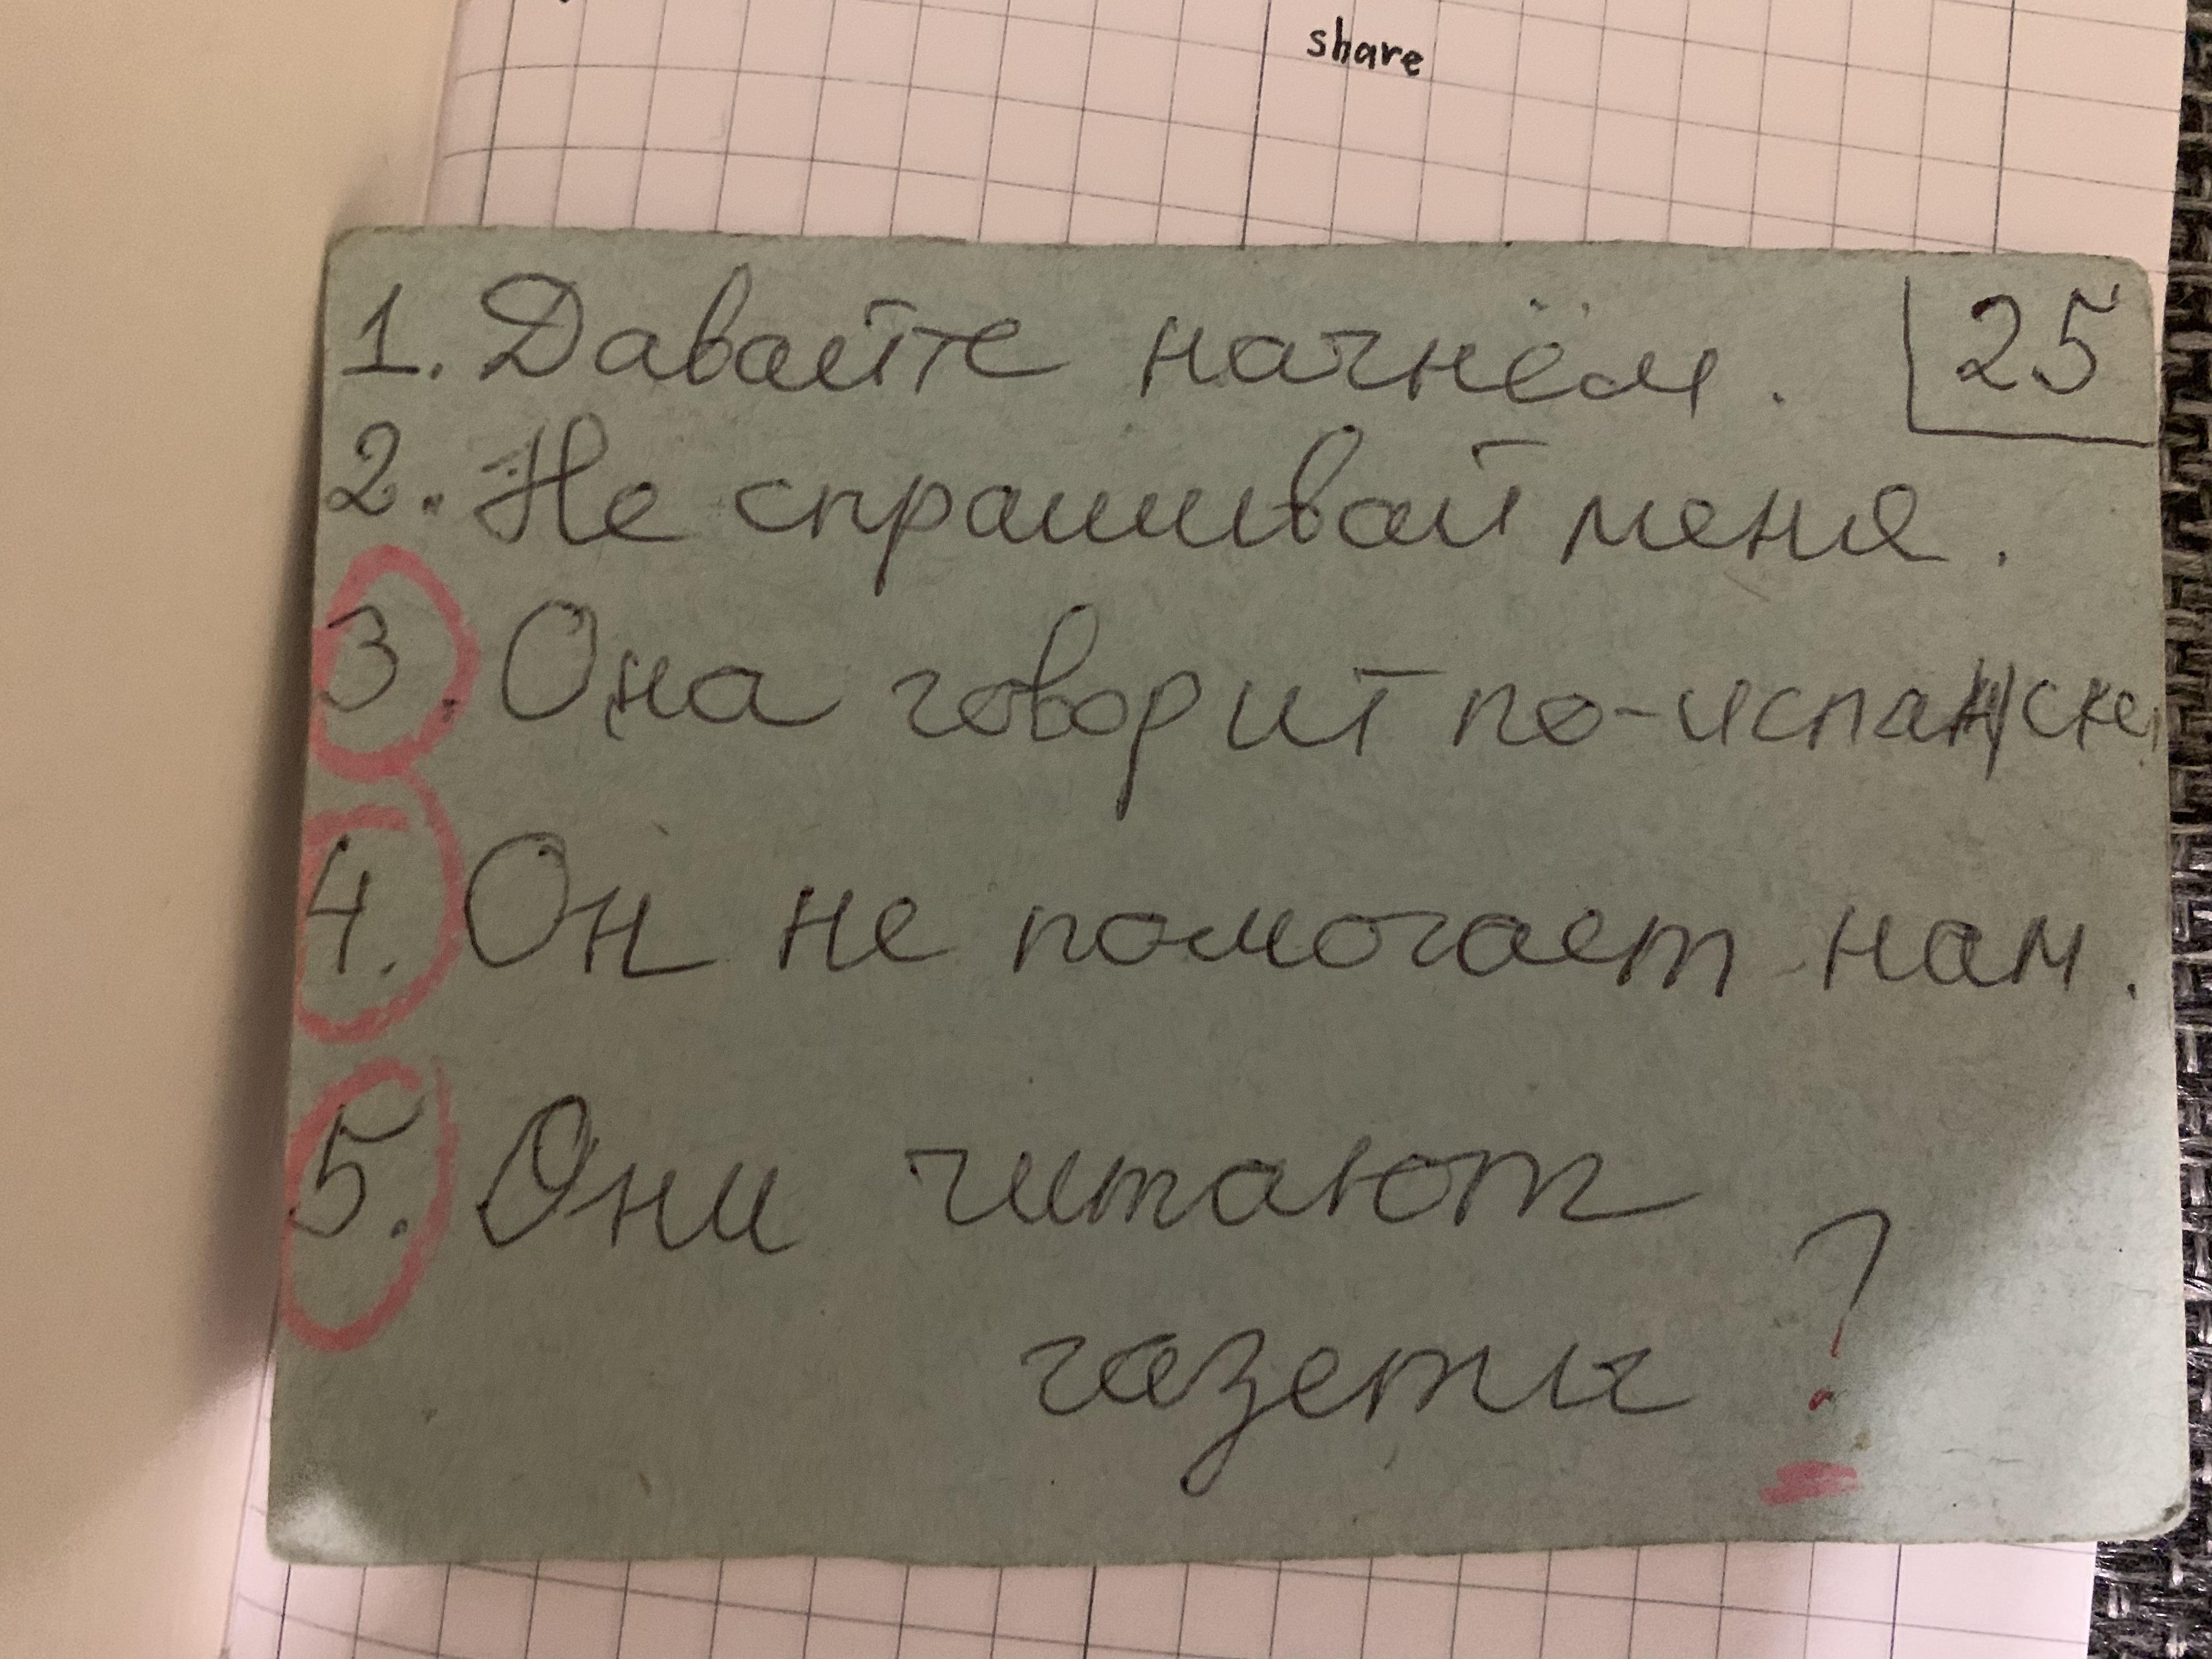 share
25
1. Давайте начнём.
2. Не спрашивай меня.
3. Она говорит по-испански.
4. Он не помогает нам.
5. Они читают
газеты ?